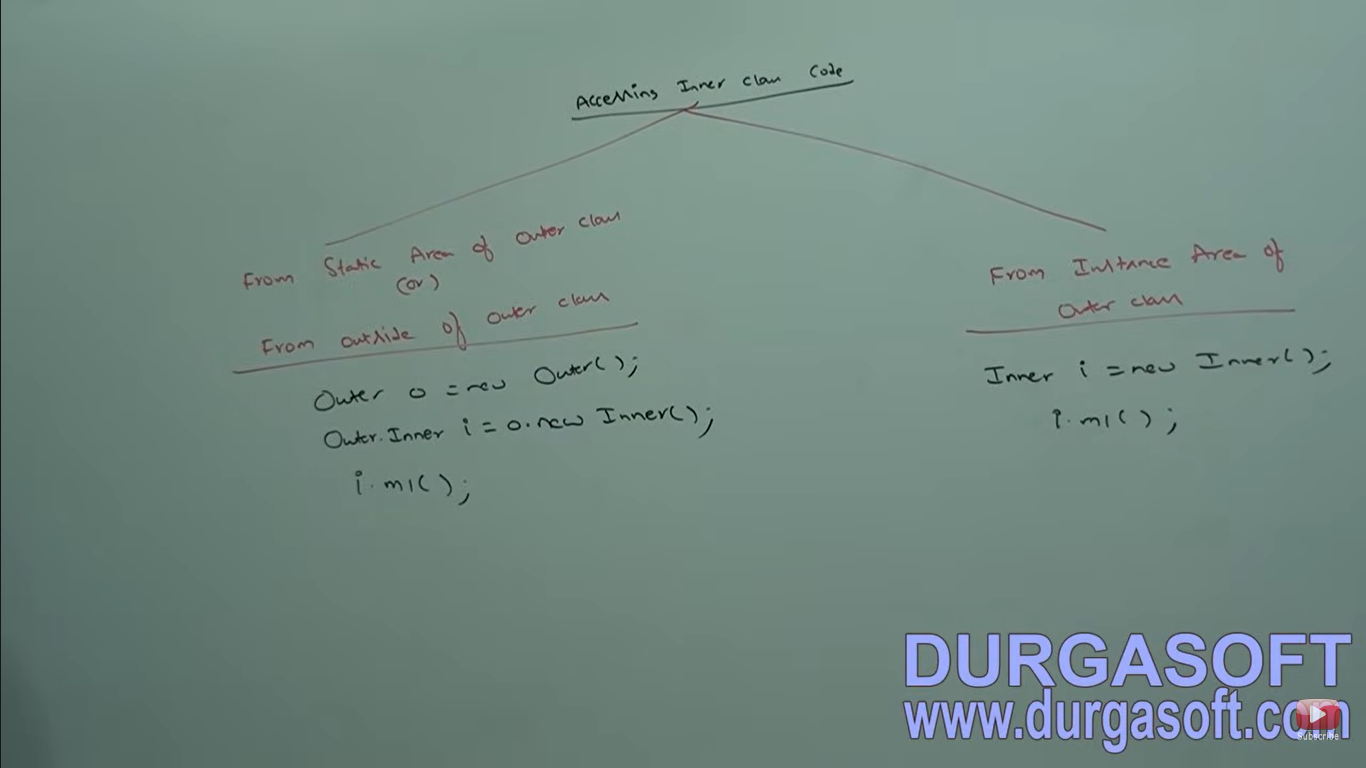 Accessing Inner class Code
From Static Area of outer class
(or)
From outside of outer class
Outer o = new Outer();
Outer.Inner i = o.new Inner();
i.m1();
From Instance Area of
Outer class
Inner i = new Inner();
i.m1();
DURGASOFT
www.durgasoft.com
Subscribe